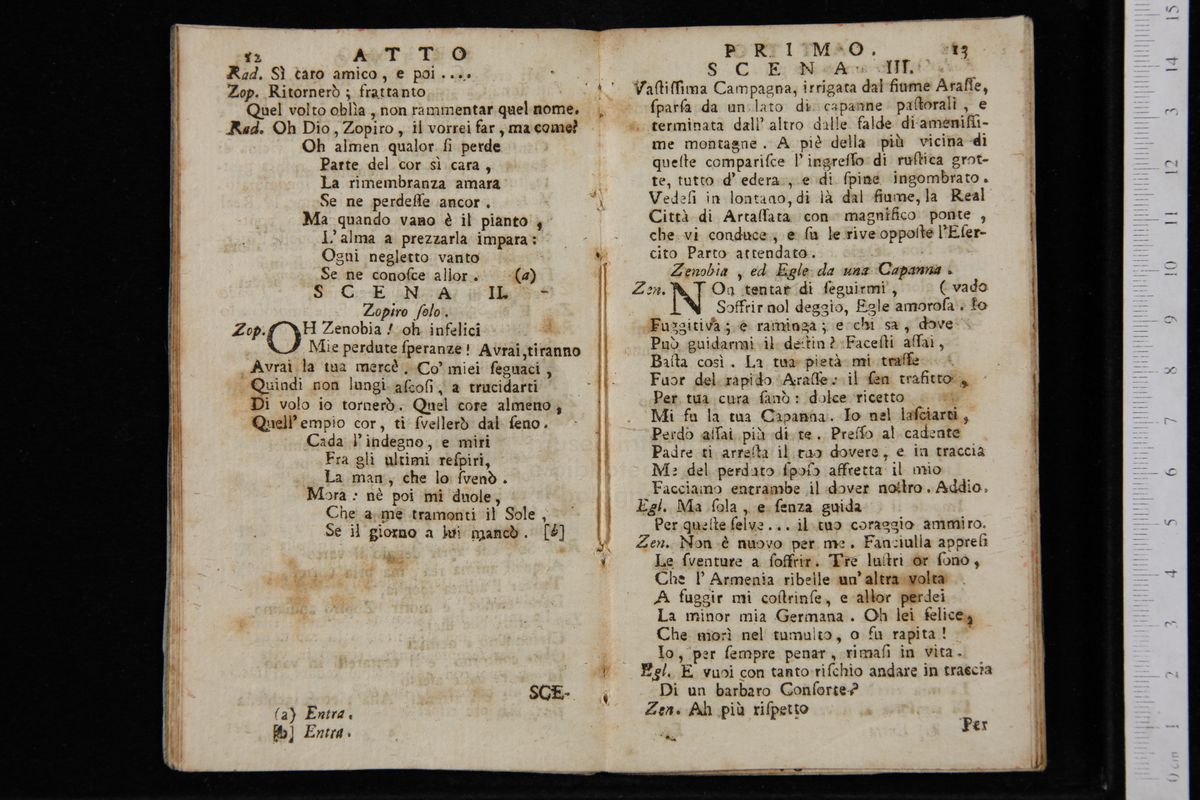 12 ATTO
Rad. Sì caro amico, e poi ....
Zop. Ritornerò; frattanto
Quel volto oblìa, non rammentar quel nome.
Rad. Oh Dio, Zopiro, il vorrei far, ma come?
Oh almen qualor ſi perde
Parte del cor sì cara,
La rimembranza amara
Se ne perdeſſe ancor.
Ma quando vano è il pianto,
L'alma a prezzarla impara:
Ogni negletto vanto
Se ne conoſce allor. (a)
SCENA II.
Zopiro ſolo.
Zop. OH Zenobia! oh infelici
Mie perdute ſperanze! Avrai, tiranno
Avrai la tua mercè. Co' miei ſeguaci,
Quindi non lungi aſcoſi, a trucidarti
Di volo io tornerò. Quel core almeno,
Quell' empio cor, ti ſvellerò dal ſeno.
Cada l'indegno, e miri
Fra gli ultimi reſpiri,
La man, che lo ſvenò.
Mora: nè poi mi duole,
Che a me tramonti il Sole,
Se il giorno a lui mancò. [b]
SCE-
(a) Entra.
[b] Entra.
PRIMO. 13
SCENA III.
Vaſtiſſima Campagna, irrigata dal fiume Araſſe,
ſparſa da un lato di capanne paſtorali, e
terminata dall' altro dalle falde di ameniſſi-
me montagne. A piè della più vicina di
queſte compariſce l'ingreſſo di ruſtica grot-
te, tutto d'edera, e di ſpine ingombrato.
Vedeſi in lontano, di là dal fiume, la Real
Città di Artaſſata con magnifico ponte,
che vi conduce, e ſu le rive oppoſte l'Eſer-
cito Parto attendato.
Zenobia, ed Egle da una Capanna.
Zen. NOn tentar di ſeguirmi, ( vado
Soffrir nol deggio, Egle amoroſa. Io
Fuggitiva; e raminga; e chi sa, dove
Può guidarmi il deſtin? Faceſti aſſai,
Baſta così. La tua pietà mi traſſe
Fuor del rapido Araſſe: il ſen trafitto,
Per tua cura ſanò: dolce ricetto
Mi fu la tua Capanna. Io nel laſciarti,
Perdo aſſai più di te. Preſſo al cadente
Padre ti arreſta il tuo dovere, e in traccia
Me del perduto ſpoſo affretta il mio
Facciamo entrambe il dover noſtro. Addio.
Egl. Ma ſola, e ſenza guida
Per queſte ſelve... il tuo coraggio ammiro.
Zen. Non è nuovo per me. Fanciulla appreſi
Le ſventure a ſoffrir. Tre luſtri or ſono,
Che l'Armenia ribelle un' altra volta
A fuggir mi coſtrinſe, e allor perdei
La minor mia Germana. Oh lei felice,
Che morì nel tumulto, o fu rapita!
Io, per ſempre penar, rimaſi in vita.
Egl. E vuoi con tanto riſchio andare in traccia
Di un barbaro Conſorte?
Zen. Ah più riſpetto
Per